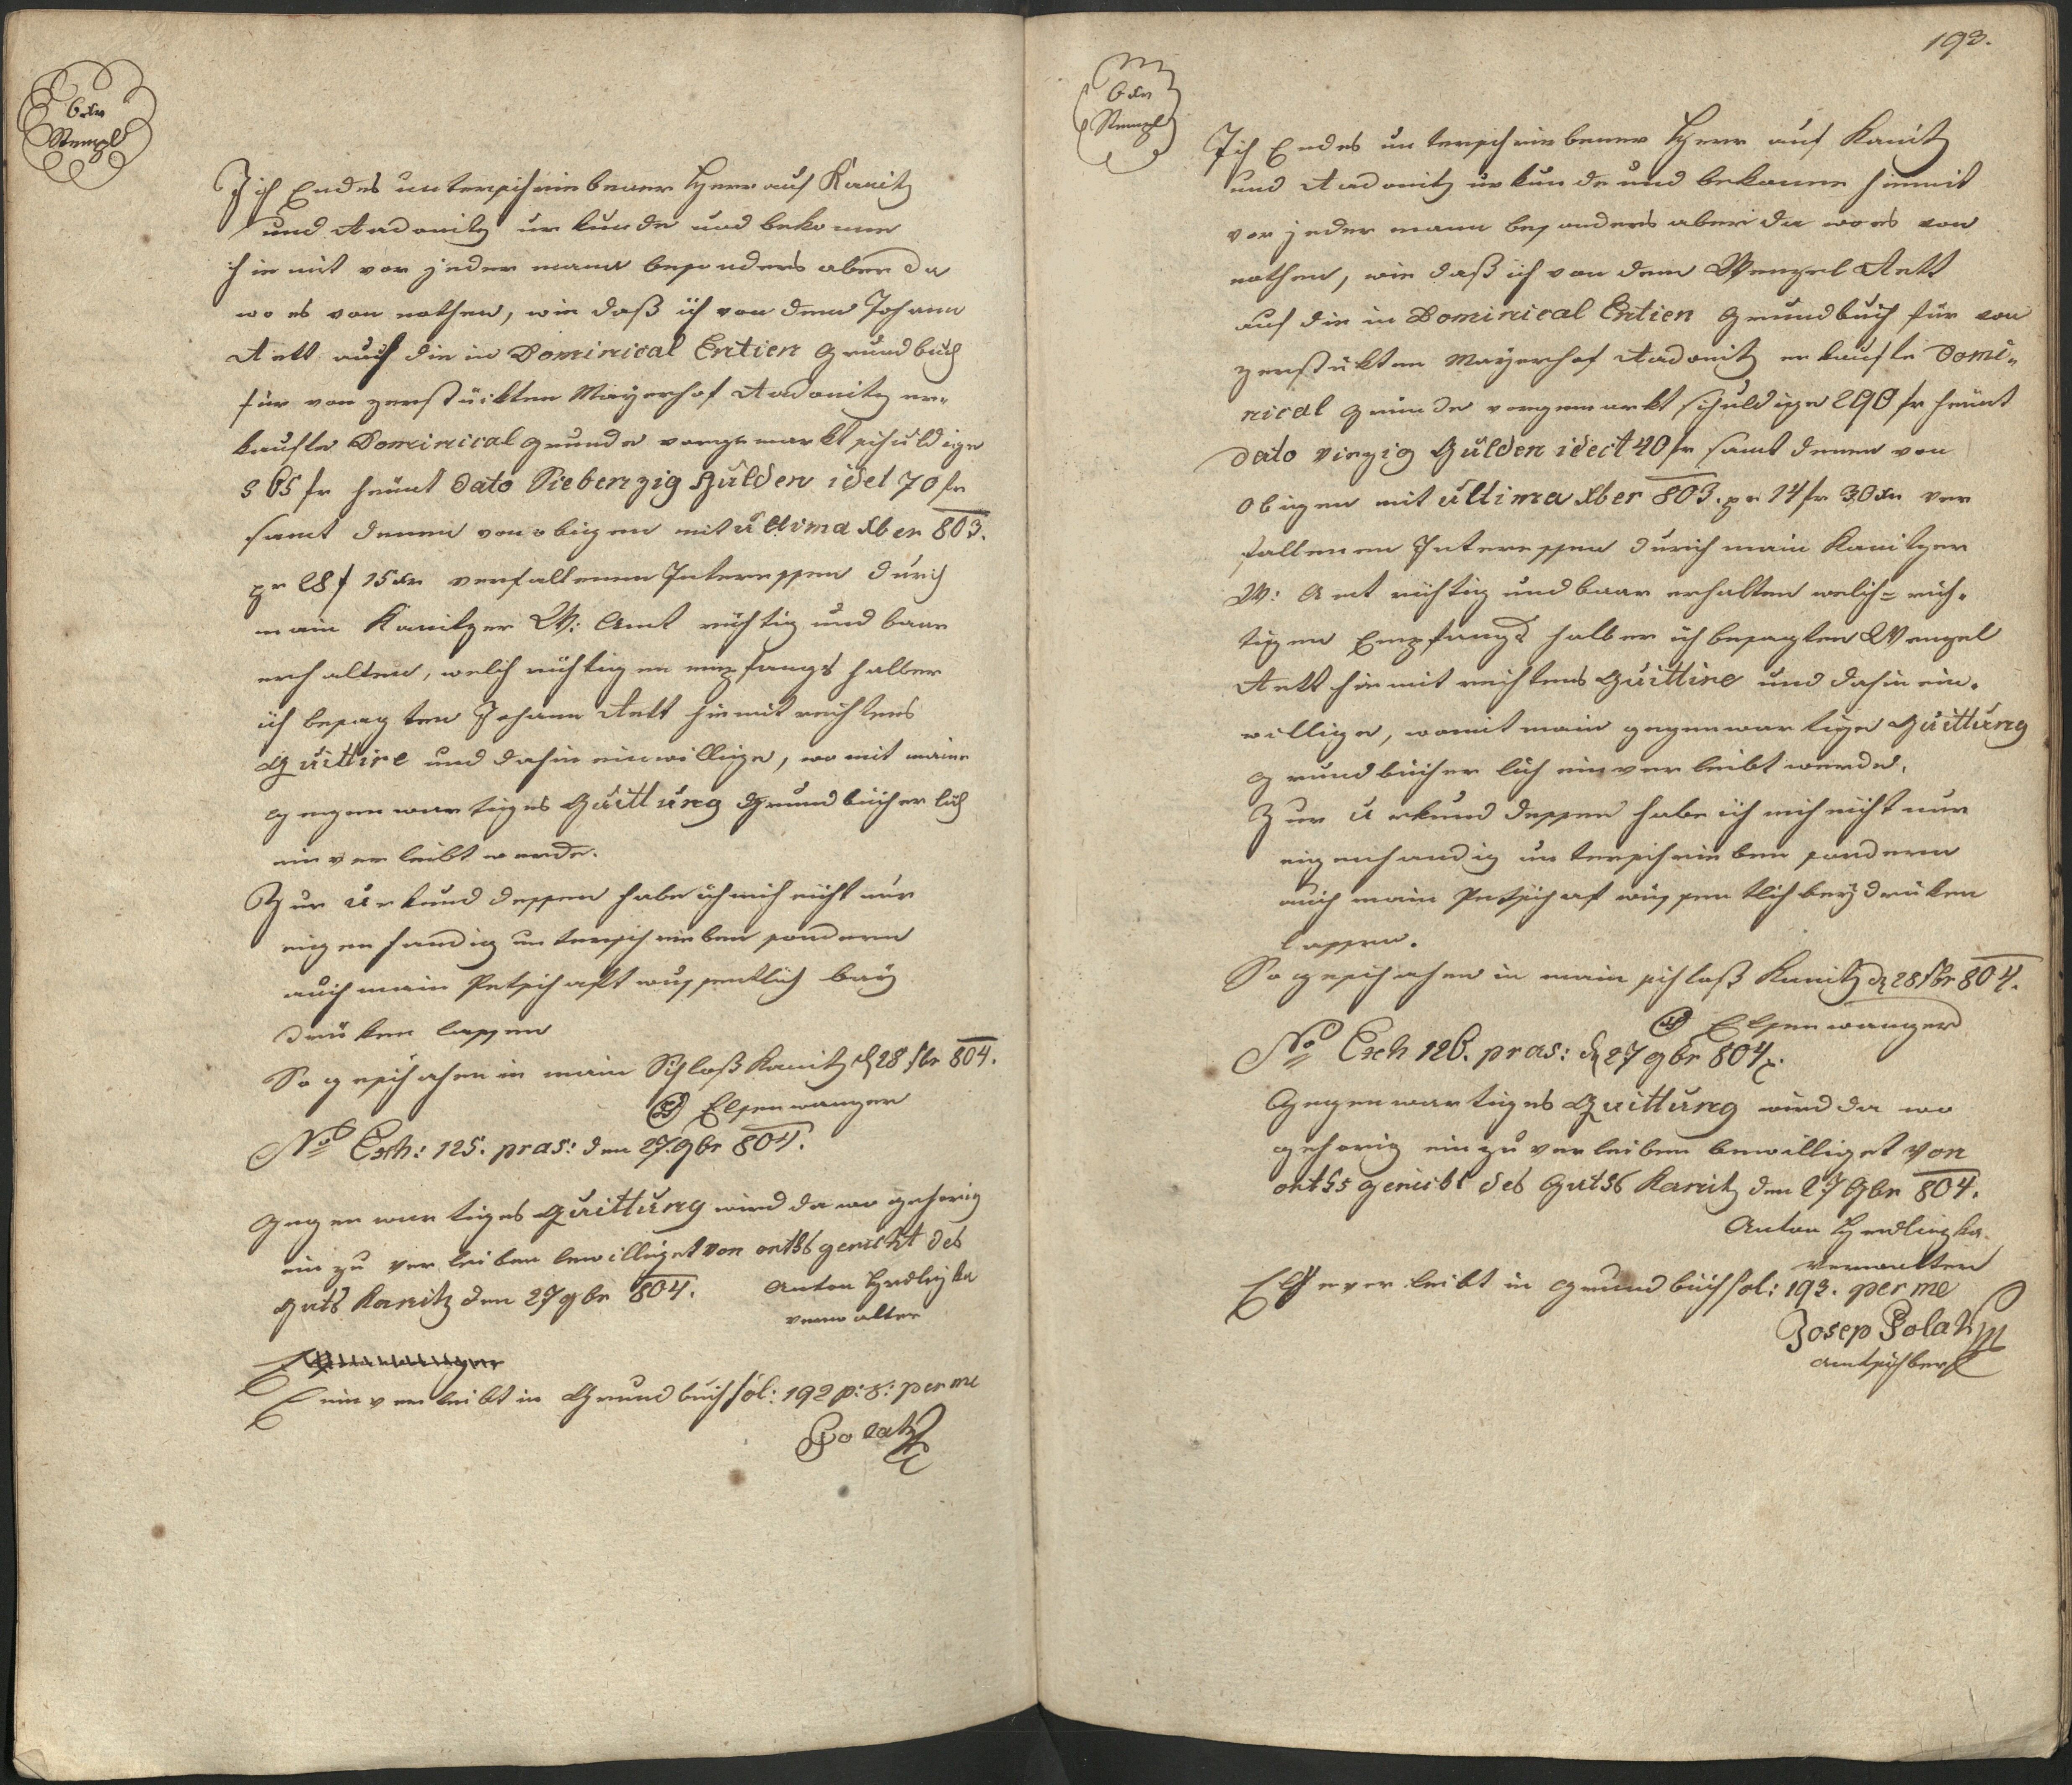 6 xr
Stempl
Ich Endes unterschriebener Herr auf Kanitz
und Aadonitz urkunde und bekenne
hiemit vor jedermann besonders aber da
wo es von nothen, wie daß ich von dem Johann
Antt auf die in Dominical Entien Grundbuch
für von zerstückten Mayerhof Aadonitz er„
kaufte Dominical grunde vorgemerkt schuldige
565 fr heünt Dato Siebenzig Gulden idel 70 fr
samt denen von obigen mit ultima xber 803.
pr 28 f 15 xr verfallenen Interessen durch
mein Kanitzer W: Amt richtig und baar
erhalten, welch richtigen empfangs halber
ich besagten Johann Antt hiemit rechtens
Quittire und dahin einwillige, womit meine
gegenwartiges Quittung Grundbücherlich
einverleibt werde.
Zur Urkund dessen habe ich mich nicht nur
eigenhandig unterschrieben sondern
auch mein Petschaft wissentlich bey
drüken lassen
So geschehen in mein Schloß Kanitz d 28 8br 804.
Elsenwanger
No Exh: 125. pras: den 27. 9br 804.
Gegenwartiges Quittung wird da wo gehorig
ein zu verleiben bewilliget von ortss gericht des
Guts Kanitz den 27 9br 804. Anton Hrdliczka
verwalter
einverleibt in Grundbuch fol: 192 p: v: per me
Polatz
193.
6 xr
Stempl
Ich Endes unterschriebener Herr auf Kanitz
und Aadonitz urkunde und bekenne hiemit
vor jedermann besonders aber da wo es von
nothen, wie daß ich von dem Wenzel Antt
auf die in Dominical Entien Grundbuch für von
zerstükten Mayerhof Aadonitz erkaufte Domi„
nical grunde vorgemerkt schuldige 290 fr heünt
Dato Vierzig Gulden idect 40 fr samt denen von
obigen mit ultima xber 803. pr 14 fr 30 xr ver
fallenen Interessen durch mein Kanitzer
W: Amt richtig und baar erhalten welch= rich„
tigen Empfangs halber ich besagten Wenzel
Antt hiemit rechtens Quittire und dahin ein„
willige, womit mein gegenwartige Quittung
grundbücherlich einverleibt werde.
Zur Urkund dessen habe ich mich nicht nur
eigenhandig unterschrieben sondern
auch mein Petschaft wissentlich beydrüken
lassen.
So geschehen in mein schloß Kanitz d 28 8br 804.
Elsenwanger
No Exh 126. pras: d 27 9br 804.
Gegenwartiges Quittung wird da wo
gehorig einzuverleiben bewilliget Von
ortss gericht des Gutss Kanitz den 27 9br 804.
Anton Hrdliczka
Verwalter
verleibt in grundbuch fol: 193. per me
Josep Polatz
amtschber